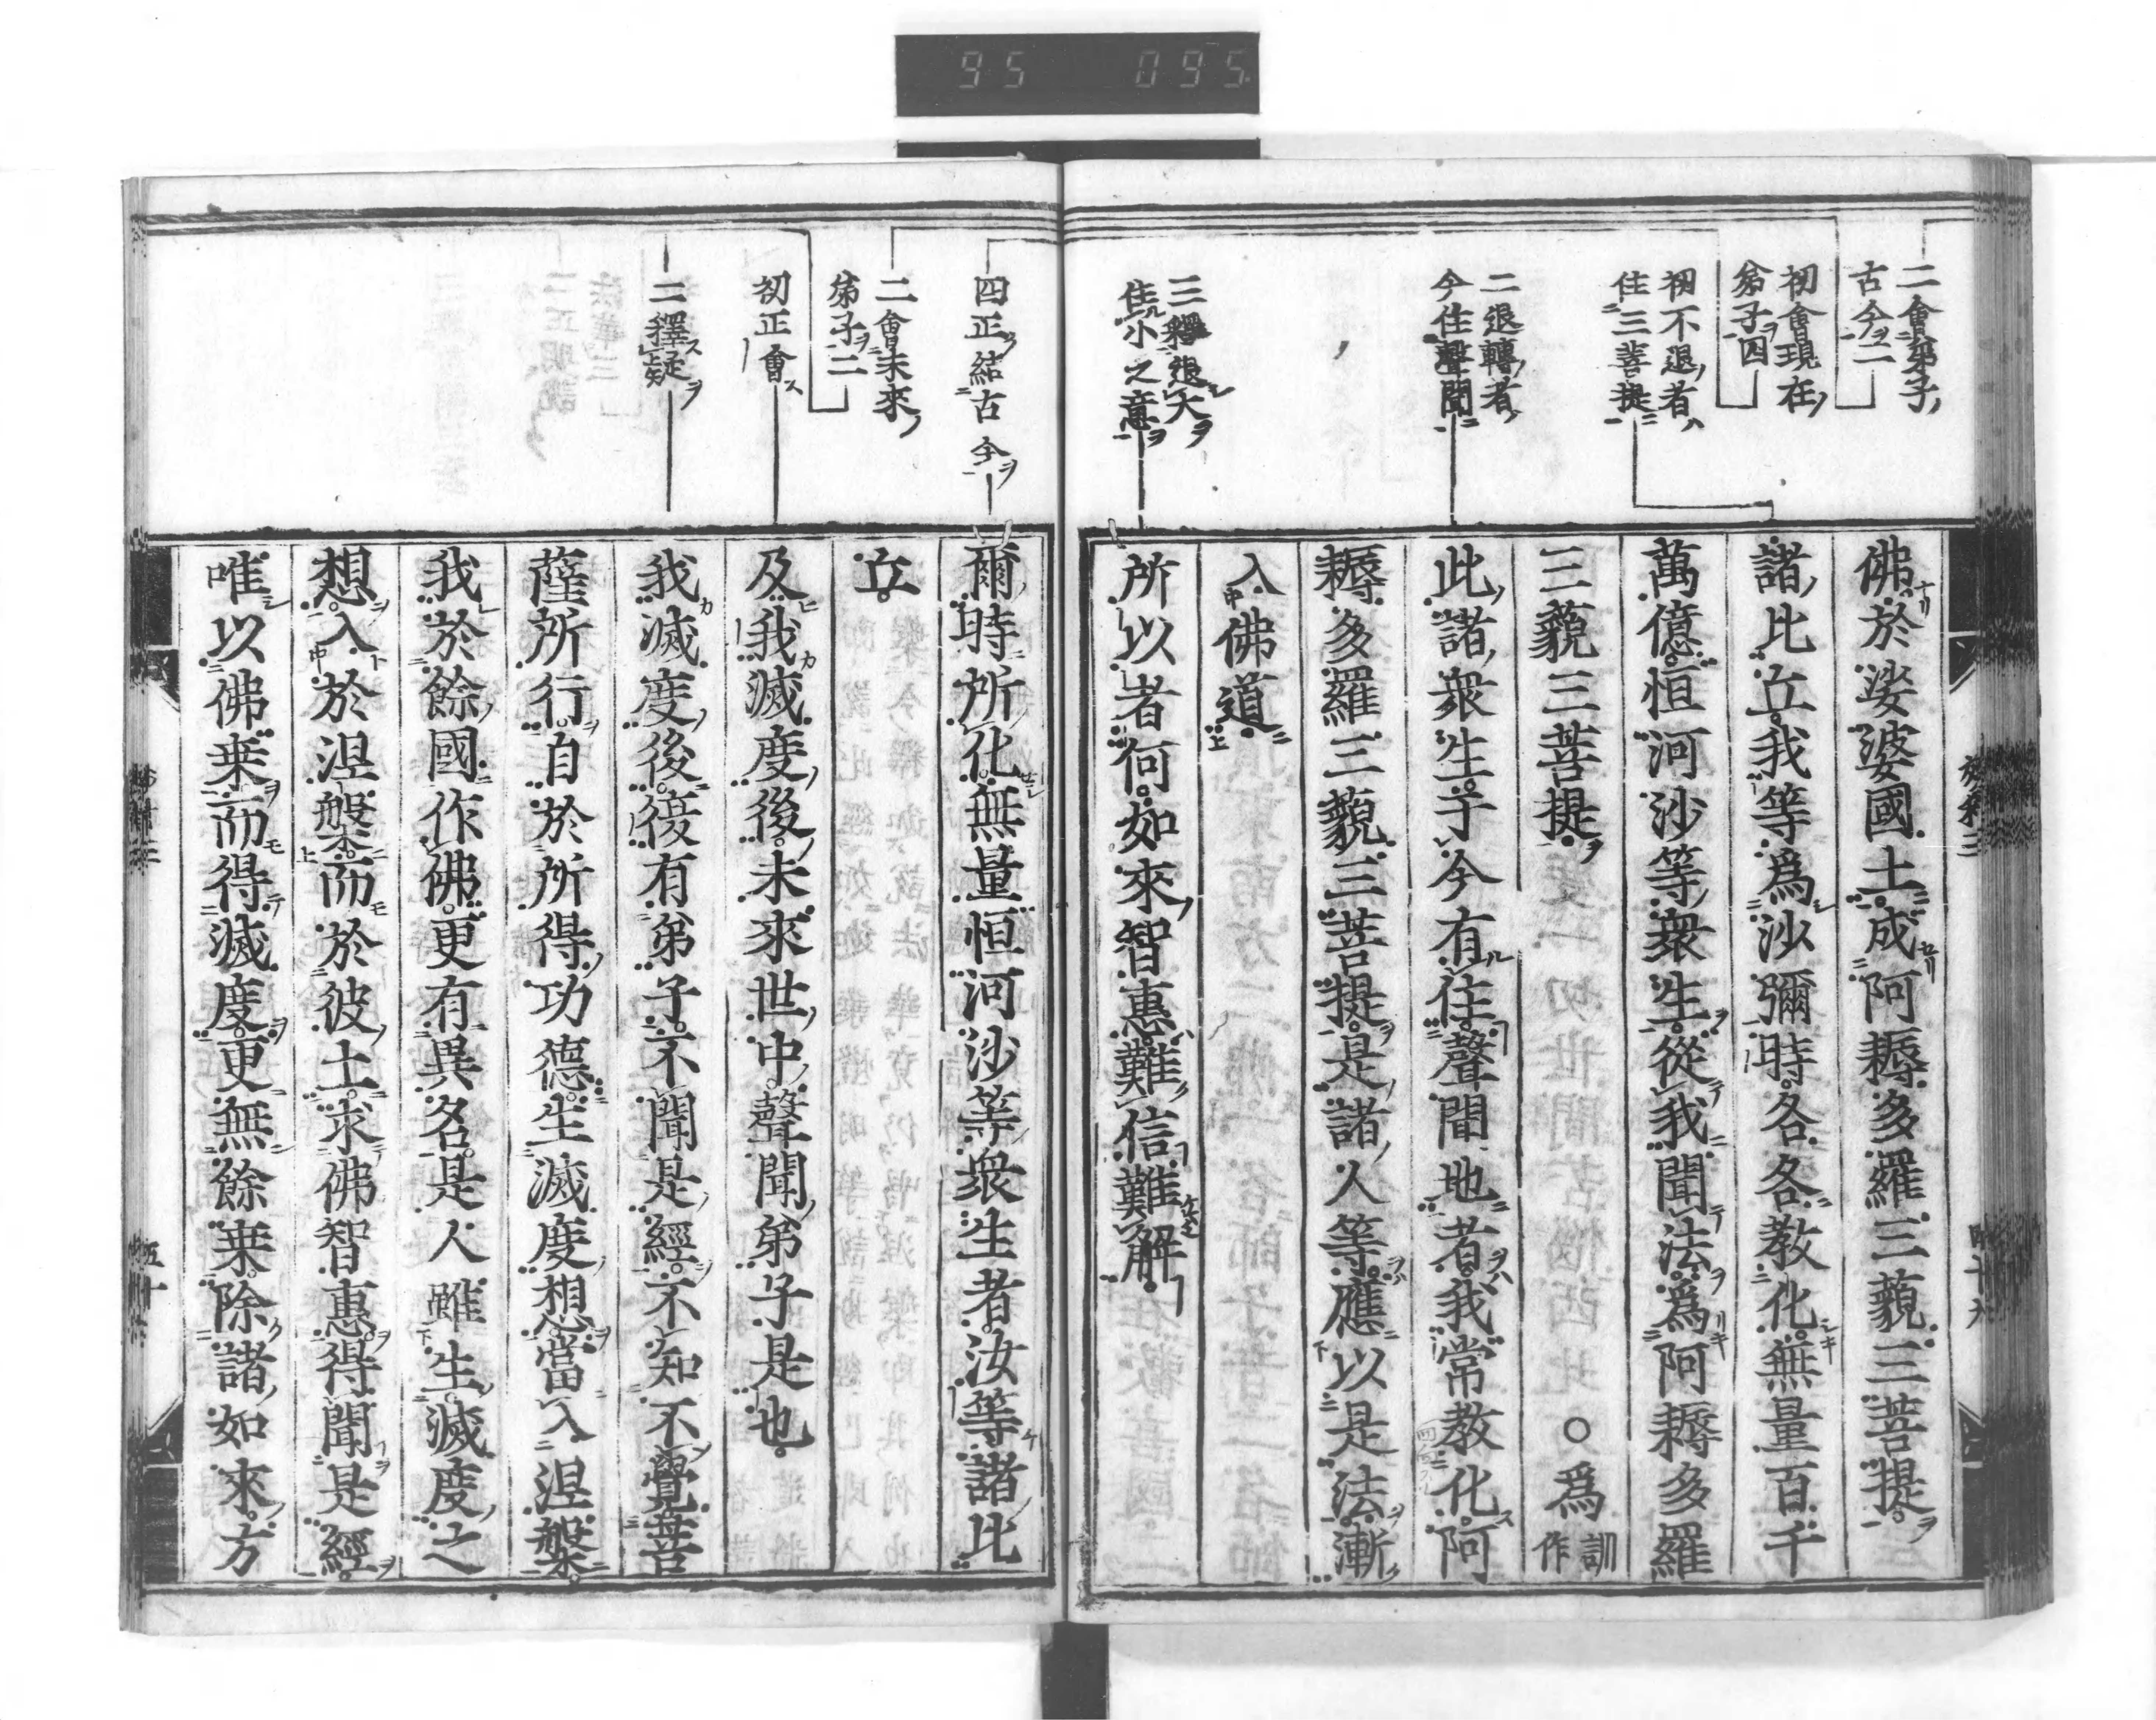 95 095
二會第子
古今二
初會現在
弟子四
初不退者
住三菩提
二退轉者
今住聲聞
三釋退大
住小之意
佛於娑婆國土成阿耨多羅三藐三菩提
諸比丘我等爲沙彌時各各教化無量百千
萬億恒河沙等衆生從我聞法爲阿耨多羅
三藐三菩提○爲訓作
此諸衆生于今有住聲聞地者我常教化阿
耨多羅三藐三菩提是諸人等應以是法漸
入佛道
所以者何如來智惠難信難解
四正結古今
二會未來
弟子二
初正會
二釋疑
爾時所化無量恒河沙等衆生者汝等諸比
丘
及我滅度後未來世中聲聞弟子是也
我滅度後復有弟子不聞是經不知不覺菩
薩所行自於所得功德生滅度想當入涅槃
我於餘國作佛更有異名是人雖生滅度之
想入於涅槃而於彼土求佛智惠得聞是經
唯以佛乗而得滅度更無餘乗除諸如來方